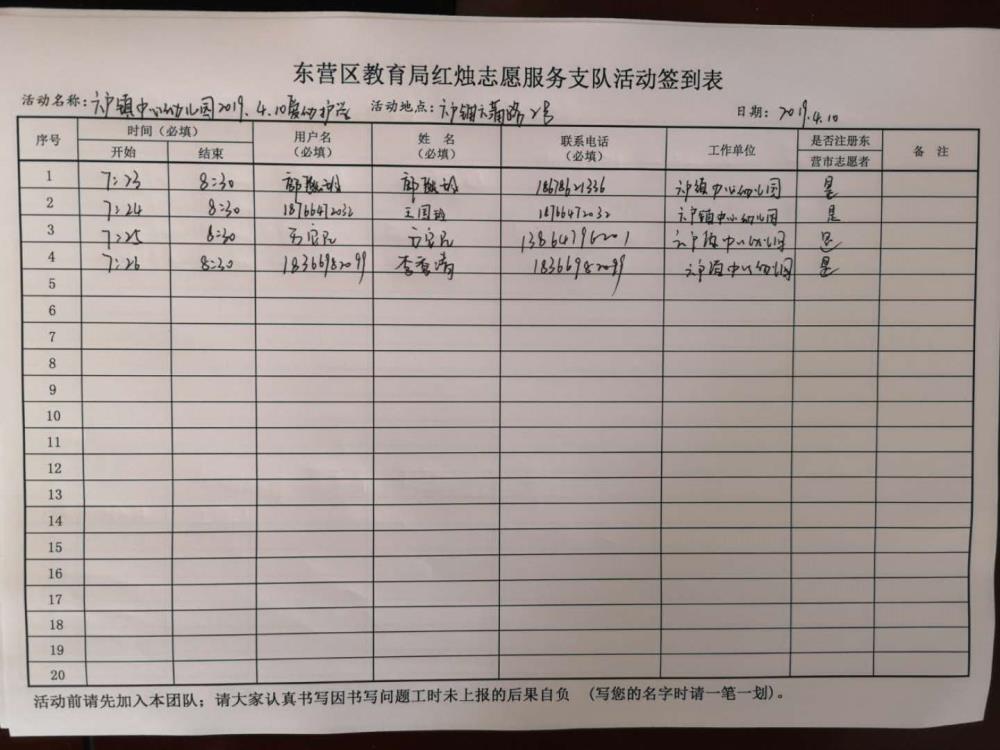 东营区教育局红烛志愿服务支队活动签到表
活动名称：六户镇中心幼儿园2019.4.10爱幼护学 活动地点： 2号 日期：2019.4.10
序号 时间（必填） 用户名（必填） 姓 名（必填） 联系电话（必填） 工作单位 是否注册东营市志愿者 备 注
开始 结束
1 7:23 8:30 18678621336 六户镇中心幼儿园 是
2 7:24 8:30 18766472032 王国 18766472032 六户镇中心幼儿园 是
3 7:25 8:30 13864796201 六户镇中心幼儿园 是
4 7:26 8:30 18366982099 李香清 18366982099 六户镇中心幼儿园 是
5
6
7
8
9
10
11
12
13
14
15
16
17
18
19
20
活动前请先加入本团队；请大家认真书写因书写问题工时未上报的后果自负 （写您的名字时请一笔一划）。